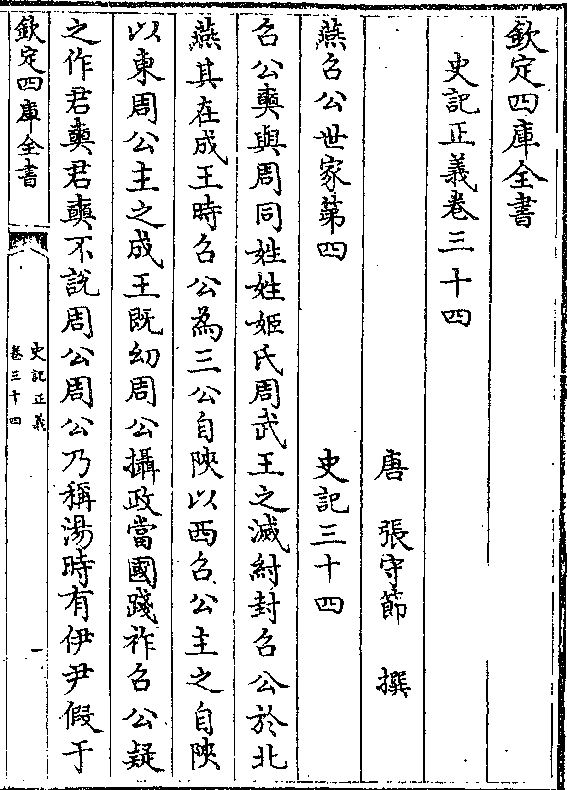 欽定四庫全書
史記正義卷三十四
唐 張守節 撰
燕召公世家第四 史記三十四
召公奭與周同姓姓姬氏周武王之滅紂封召公於北
燕其在成王時召公為三公自陝以西召公主之自陝
以東周公主之成王既幼周公攝政當國踐祚召公疑
之作君奭君奭不說周公周公乃稱湯時有伊尹假于
欽定四庫全書
史記正義
卷三十四
一